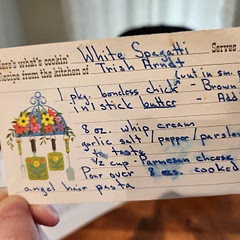 Here's what's cookin' White Spagatti Serves
Recipe from the kitchen of Trish Arndt
(cut in sm.
1 pkg bondless chick - Brown
in 1 stick butter - Add
8 oz. whip cream
garlic salt/pepper/parsley
to tasty
1/2 cup Parmesan cheese
Pour over 8 oz. cooked
angel hair pasta